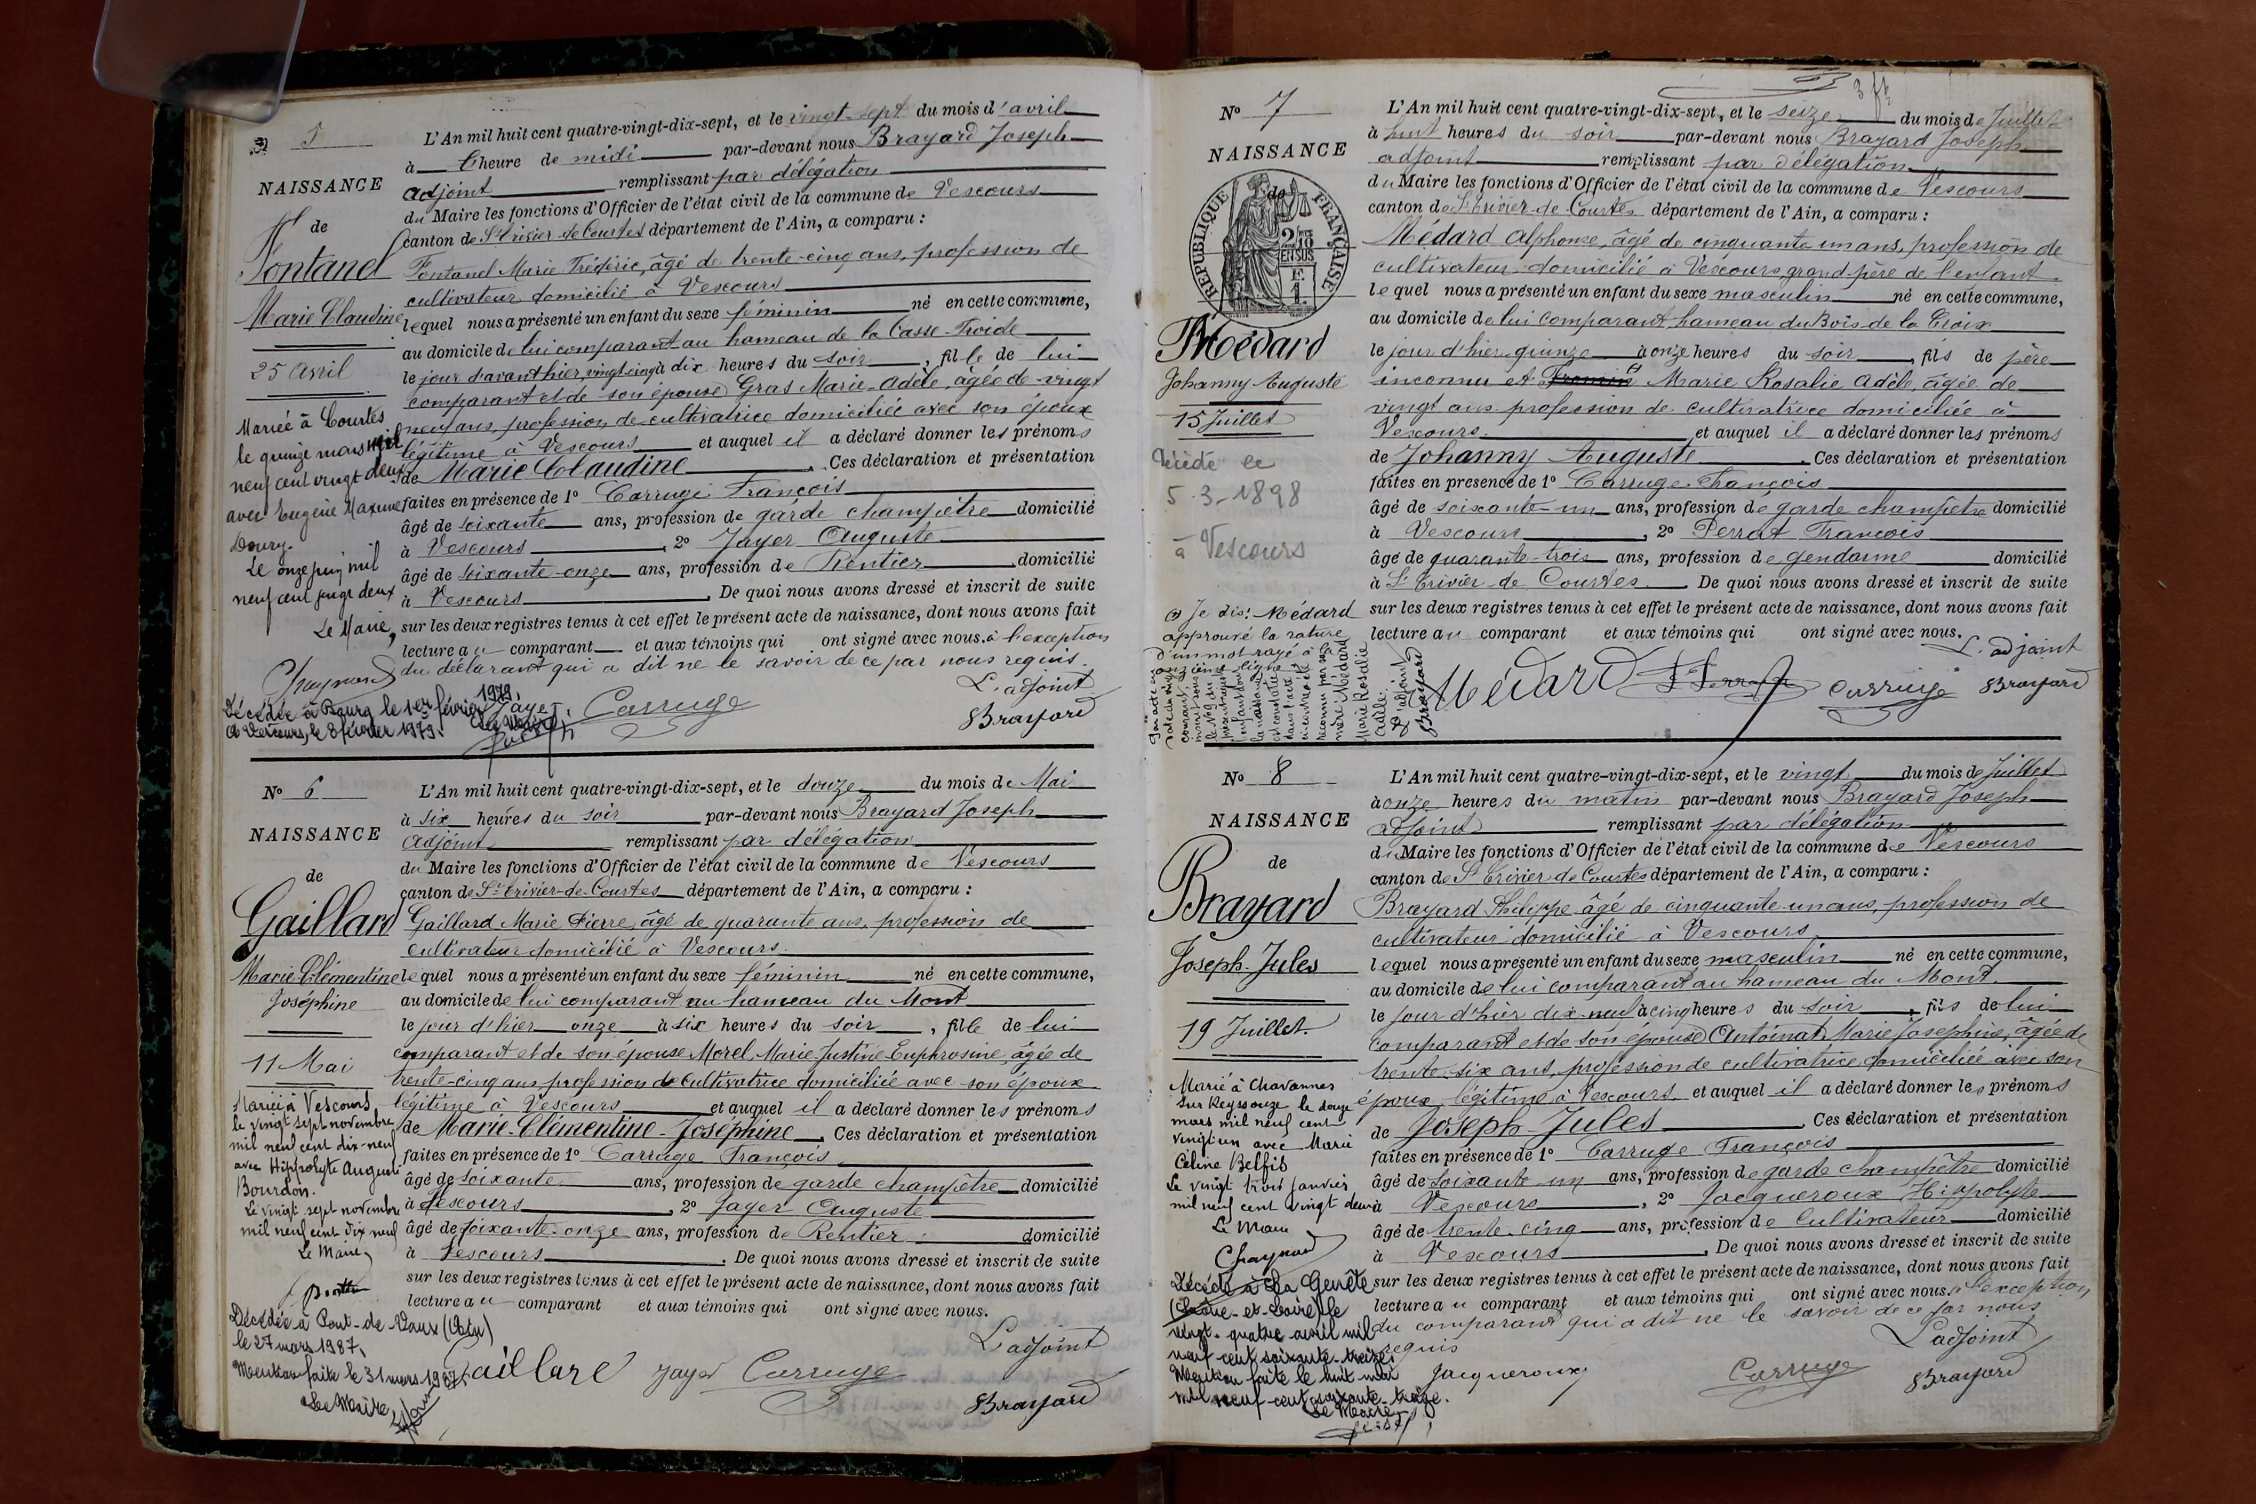 N° 5
NAISSANCE
de
Fontanel
Marie Claudine
25 Avril
Mariée à Courtes
le quinze mars mil
neuf cent vingt deux
avec Eugène Maxime
Doury.
Le onze juin mil
neuf cent vingt deux
Le Maire,
Chaynard
Décédée à Bourg le 1er février 1979.
A Vescours, le 8 février 1979.
Le Maire,
L'An mil huit cent quatre-vingt-dix-sept, et le vingt-sept du mois d'avril
à heure de midi par-devant nous Brayard Joseph
adjoint remplissant par délégation
du Maire les fonctions d'Officier de l'état civil de la commune de Vescours
canton de St Trivier-de-Courtes département de l'Ain, a comparu :
Fontanel Marie Frédéric, âgé de trente-cinq ans, profession de
cultivateur domicilié à Vescours
lequel nous a présenté un enfant du sexe féminin né en cette commune,
au domicile de lui comparant au hameau de la Casse-Froide
le jour d'avant hier, vingt cinq à dix heures du soir, fille de lui
comparant et de son épouse Gras Marie-Adèle, âgée de vingt
neuf ans, profession de cultivatrice domiciliée avec son époux
légitime à Vescours et auquel il a déclaré donner les prénoms
de Marie Claudine. Ces déclaration et présentation
faites en présence de 1° Carruge François
âgé de soixante ans, profession de garde champêtre domicilié
à Vescours, 2° Jayer Auguste
âgé de soixante-onze ans, profession de Rentier domicilié
à Vescours. De quoi nous avons dressé et inscrit de suite
sur les deux registres tenus à cet effet le présent acte de naissance, dont nous avons fait
lecture au comparant et aux témoins qui ont signé avec nous, à l'exception
du déclarant qui a dit ne le savoir de ce par nous requis.
L'adjoint
Jayer Carruge
JBrayard
N° 6
NAISSANCE
de
Gaillard
Marie Clémentine
Joséphine
11 Mai
Mariée à Vescours
le vingt sept novembre
mil neuf cent dix-neuf
avec Hippolyte Auguste
Bourdon.
Le vingt sept novembre
mil neuf cent dix neuf
Le Maire,
Décédée à Pont-de-Vaux (Ain)
le 27 mars 1987,
Mention faite le 31 mars 1987.
Le Maire,
L'An mil huit cent quatre-vingt-dix-sept, et le douze du mois de Mai
à six heures du soir par-devant nous Brayard Joseph
adjoint remplissant par délégation
du Maire les fonctions d'Officier de l'état civil de la commune de Vescours
canton de St-Trivier-de-Courtes département de l'Ain, a comparu :
Gaillard Marie Pierre, âgé de quarante ans, profession de
cultivateur domicilié à Vescours
lequel nous a présenté un enfant du sexe féminin né en cette commune,
au domicile de lui comparant au hameau du Mont
le jour d'hier onze à six heures du soir, fille de lui
comparant et de son épouse Morel Marie-Justine Euphrosine, âgée de
trente-cinq ans, profession de cultivatrice domiciliée avec son époux
légitime à Vescours et auquel il a déclaré donner les prénoms
de Marie-Clémentine-Joséphine. Ces déclaration et présentation
faites en présence de 1° Carruge François
âgé de soixante ans, profession de garde champêtre domicilié
à Vescours, 2° Jayer Auguste
âgé de soixante-onze ans, profession de Rentier domicilié
à Vescours. De quoi nous avons dressé et inscrit de suite
sur les deux registres tenus à cet effet le présent acte de naissance, dont nous avons fait
lecture au comparant et aux témoins qui ont signé avec nous.
L'adjoint
Gaillard Jayer Carruge
JBrayard
N° 7
NAISSANCE
de
RÉPUBLIQUE FRANÇAISE
2/10 EN SUS
F. 1.
Médard
Johanny Auguste
15 Juillet
Décédé le
5-3-1898
à Vescours
Je dis: Médard
approuvé la rature
d'un mot rayé à la
onzième ligne
L'adjoint
Brayard
L'An mil huit cent quatre-vingt-dix-sept, et le seize du mois de Juillet
à huit heures du soir par-devant nous Brayard Joseph
adjoint remplissant par délégation
du Maire les fonctions d'Officier de l'état civil de la commune de Vescours
canton de St Trivier-de-Courtes département de l'Ain, a comparu :
Médard Alphonse, âgé de cinquante un ans, profession de
cultivateur domicilié à Vescours, grand-père de l'enfant
lequel nous a présenté un enfant du sexe masculin né en cette commune,
au domicile de lui comparant hameau du Bois de la Croix
le jour d'hier quinze à onze heures du soir, fils de père
inconnu et Marie Rosalie Adèle, âgée de
vingt ans profession de cultivatrice domiciliée à
Vescours et auquel il a déclaré donner les prénoms
de Johanny Auguste. Ces déclaration et présentation
faites en présence de 1° Carruge François
âgé de soixante-un ans, profession de garde champêtre domicilié
à Vescours, 2° Perrat François
âgé de quarante-trois ans, profession de gendarme domicilié
à St Trivier de Courtes. De quoi nous avons dressé et inscrit de suite
sur les deux registres tenus à cet effet le présent acte de naissance, dont nous avons fait
lecture au comparant et aux témoins qui ont signé avec nous.
L'adjoint
Médard Perrat Carruge JBrayard
N° 8
NAISSANCE
de
Brayard
Joseph-Jules
19 Juillet.
Marié à Chavannes
sur Reyssouze le douze
mars mil neuf cent
vingt un avec Marie
Céline Belfis
Le vingt trois janvier
mil neuf cent vingt deux
Le Maire
Chaynard
Décédé à La Genête
(Saône-et-Loire) le
vingt-quatre avril mil
neuf cent soixante-treize
Mention faite le huit mai
mil neuf cent soixante-treize.
Le Maire,
L'An mil huit cent quatre-vingt-dix-sept, et le vingt du mois de Juillet
à onze heures du matin par-devant nous Brayard Joseph
adjoint remplissant par délégation
du Maire les fonctions d'Officier de l'état civil de la commune de Vescours
canton de St Trivier de Courtes département de l'Ain, a comparu :
Brayard Philippe âgé de cinquante-un ans, profession de
cultivateur domicilié à Vescours
lequel nous a présenté un enfant du sexe masculin né en cette commune,
au domicile de lui comparant au hameau du Mont
le jour d'hier dix-neuf à cinq heures du soir, fils de lui
comparant et de son épouse Antoinat Marie Joséphine, âgée de
trente-six ans, profession de cultivatrice domiciliée avec son
époux légitime à Vescours et auquel il a déclaré donner les prénoms
de Joseph-Jules. Ces déclaration et présentation
faites en présence de 1° Carruge François
âgé de soixante-un ans, profession de garde champêtre domicilié
à Vescours, 2° Jacqueroux Hippolyte
âgé de trente-cinq ans, profession de Cultivateur domicilié
à Vescours. De quoi nous avons dressé et inscrit de suite
sur les deux registres tenus à cet effet le présent acte de naissance, dont nous avons fait
lecture au comparant et aux témoins qui ont signé avec nous, à l'exception
du comparant qui a dit ne le savoir de ce par nous
requis
L'adjoint
Jacqueroux Carruge JBrayard